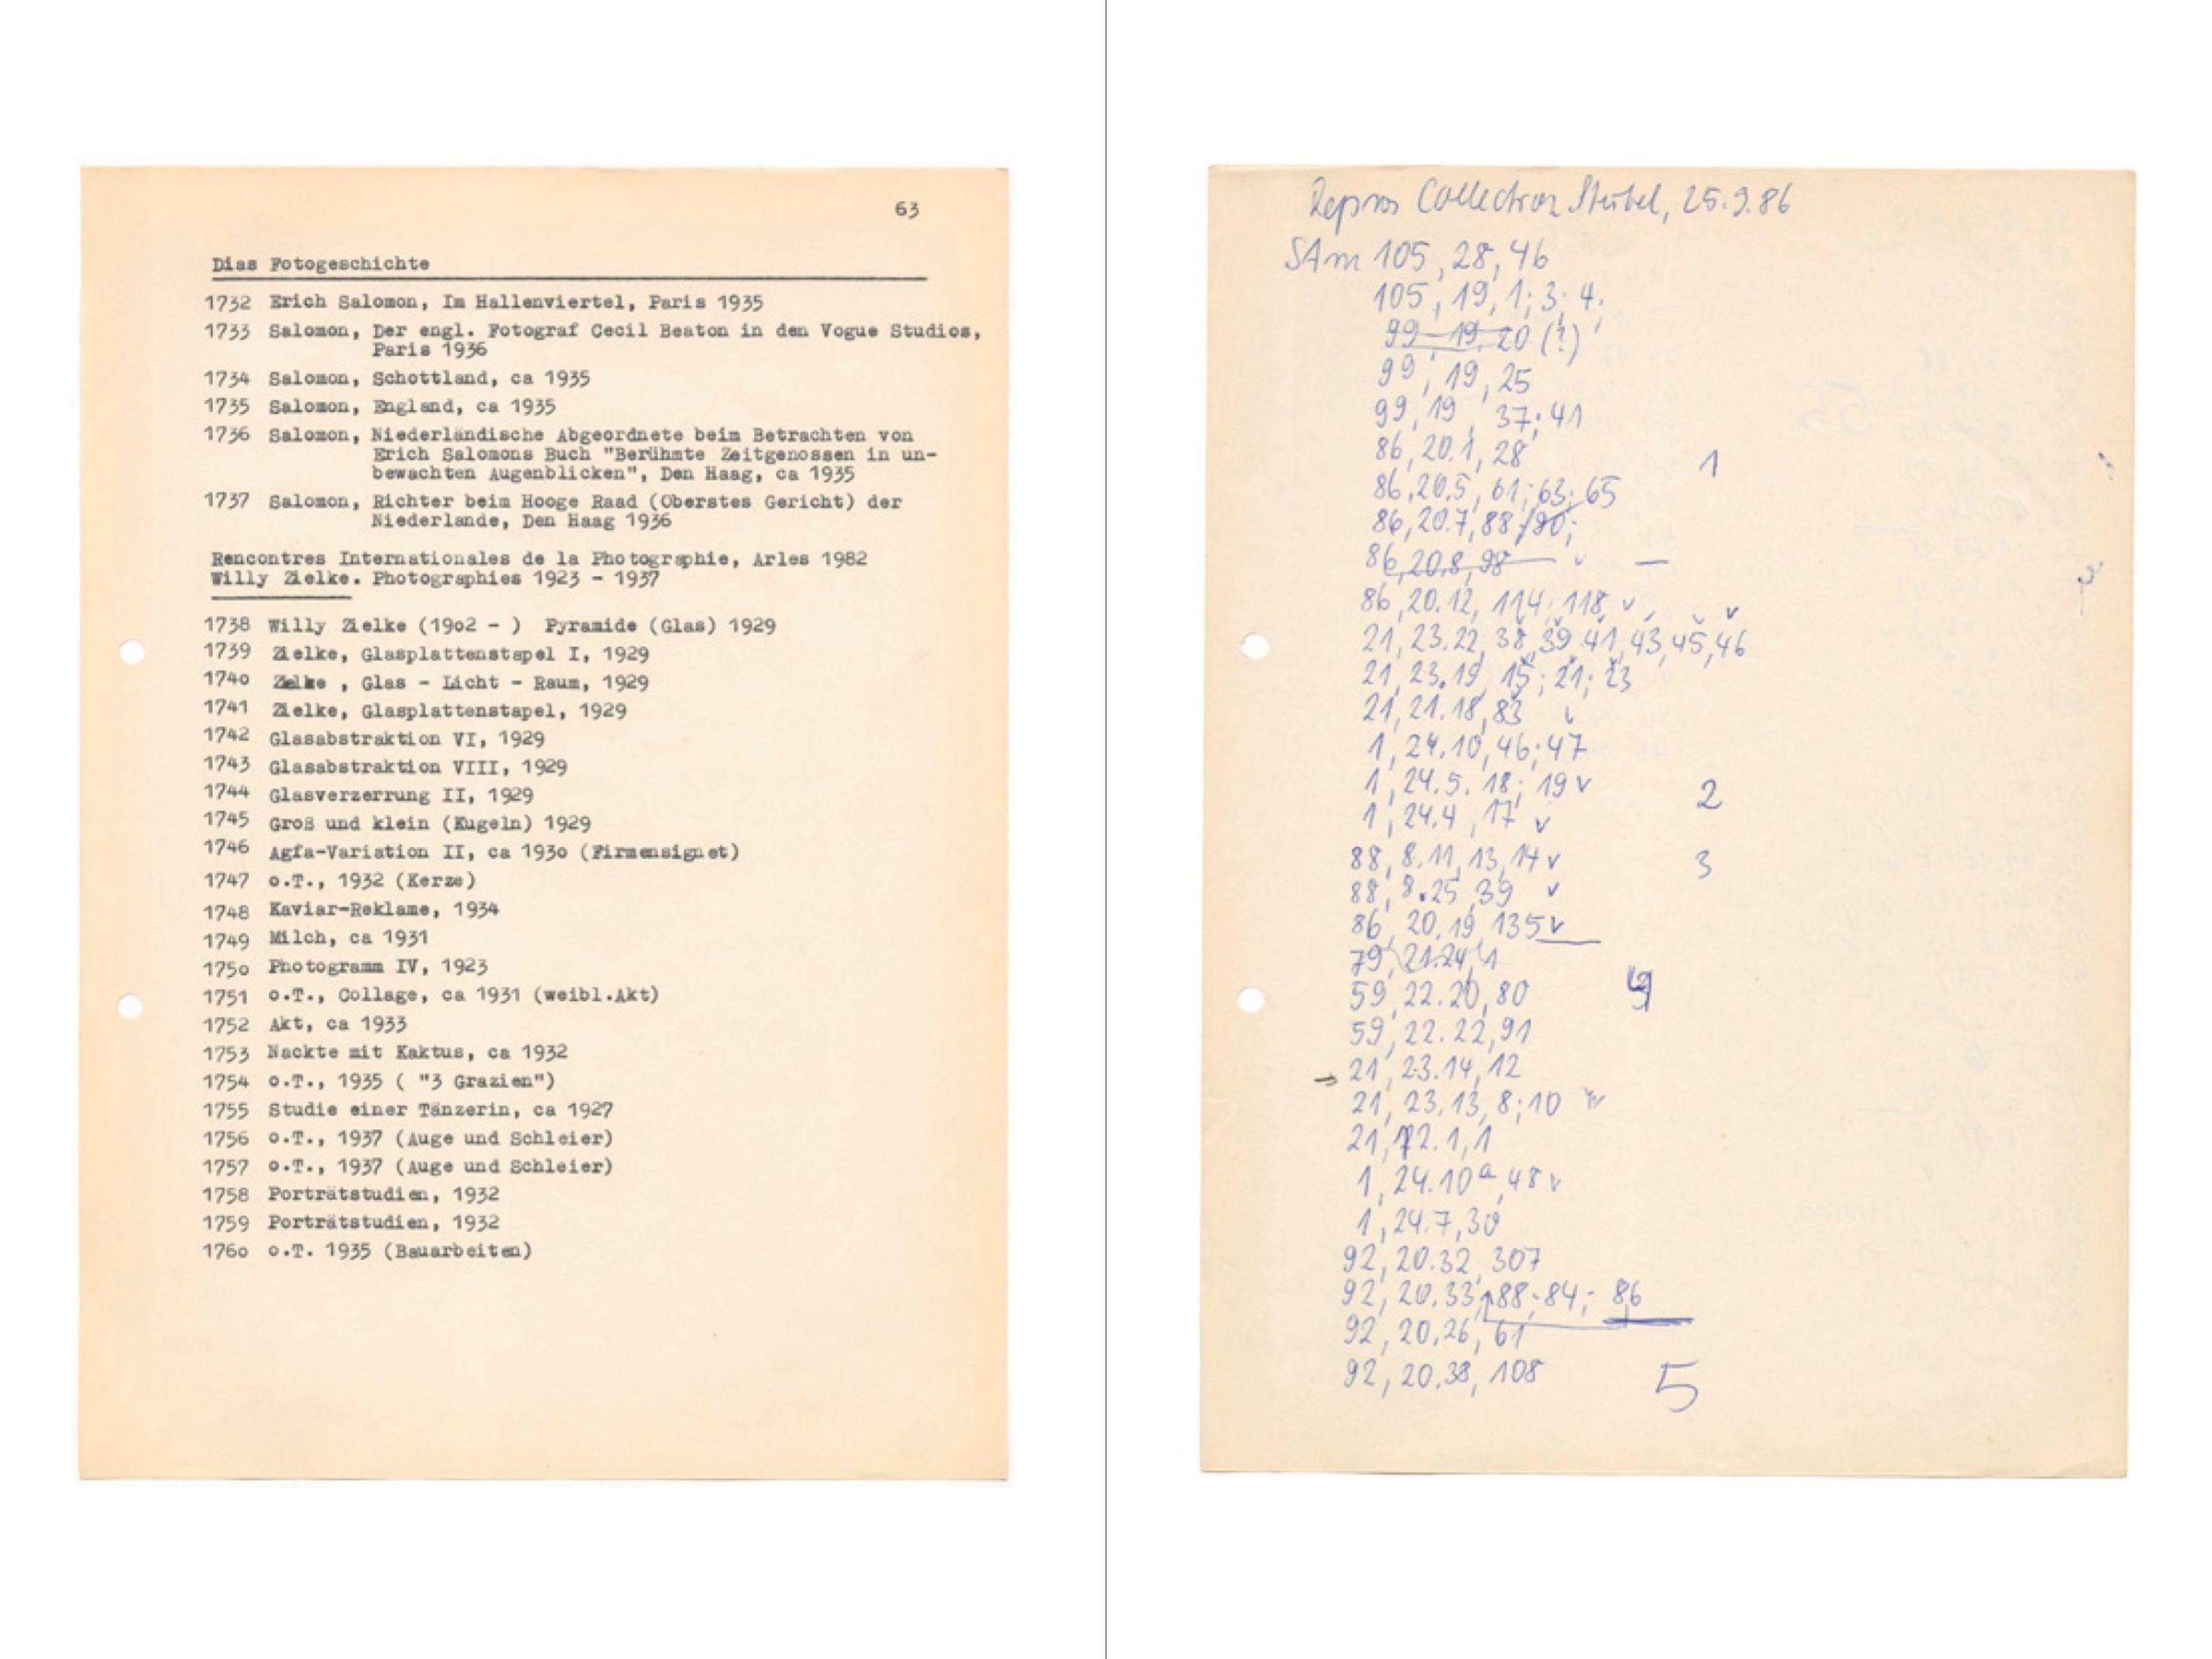 63
Dias Fotogeschichte
1732 Erich Salomon, Im Hallenviertel, Paris 1935
1733 Salomon, Der engl. Fotograf Cecil Beaton in den Vogue Studios,
Paris 1936
1734 Salomon, Schottland, ca 1935
1735 Salomon, England, ca 1935
1736 Salomon, Niederländische Abgeordnete beim Betrachten von
Erich Salomons Buch "Berühmte Zeitgenossen in un-
bewachten Augenblicken", Den Haag, ca 1935
1737 Salomon, Richter beim Hooge Raad (Oberstes Gericht) der
Niederlande, Den Haag 1936
Rencontres Internationales de la Photographie, Arles 1982
Willy Zielke. Photographies 1923 - 1937
1738 Willy Zielke (19o2 - ) Pyramide (Glas) 1929
1739 Zielke, Glasplattenstapel I, 1929
174o Zielke , Glas - Licht - Raum, 1929
1741 Zielke, Glasplattenstapel, 1929
1742 Glasabstraktion VI, 1929
1743 Glasabstraktion VIII, 1929
1744 Glasverzerrung II, 1929
1745 Groß und klein (Kugeln) 1929
1746 Agfa-Variation II, ca 193o (Firmensignet)
1747 o.T., 1932 (Kerze)
1748 Kaviar-Reklame, 1934
1749 Milch, ca 1931
175o Photogramm IV, 1923
1751 o.T., Collage, ca 1931 (weibl.Akt)
1752 Akt, ca 1933
1753 Nackte mit Kaktus, ca 1932
1754 o.T., 1935 ( "3 Grazien")
1755 Studie einer Tänzerin, ca 1927
1756 o.T., 1937 (Auge und Schleier)
1757 o.T., 1937 (Auge und Schleier)
1758 Porträtstudien, 1932
1759 Porträtstudien, 1932
176o o.T. 1935 (Bauarbeiten)
Repros Collection Stübel, 25.9.86
SAm 105, 28, 46
105, 19, 1; 3; 4;
99, 19, 20 (?)
99, 19, 25
99, 19, 37; 41
86, 20.1, 28
1
86, 20.5, 61; 63; 65
86, 20.7, 88; 90;
86, 20.8, 98 v —
86, 20.12, 114; 118 v
21, 23.22, 38, 39, 41, 43, 45, 46
21, 23.19, 15; 21; 23
21, 21.18, 83 v
1, 24.10, 46; 47
1, 24.5, 18; 19 v
2
1, 24.4, 17 v
88, 8.11, 13, 14 v
3
88, 8.25, 39 v
86, 20.19, 135 v
79, 21.24, 1
59, 22.20, 80
4
59, 22.22, 91
21, 23.14, 12
21, 23.13, 8; 10 v
21, 12.1, 1
1, 24.10a, 48 v
1, 24.7, 30
92, 20.32, 307
92, 20.33, 88; 84; 86
92, 20.26, 61
92, 20.38, 108
5